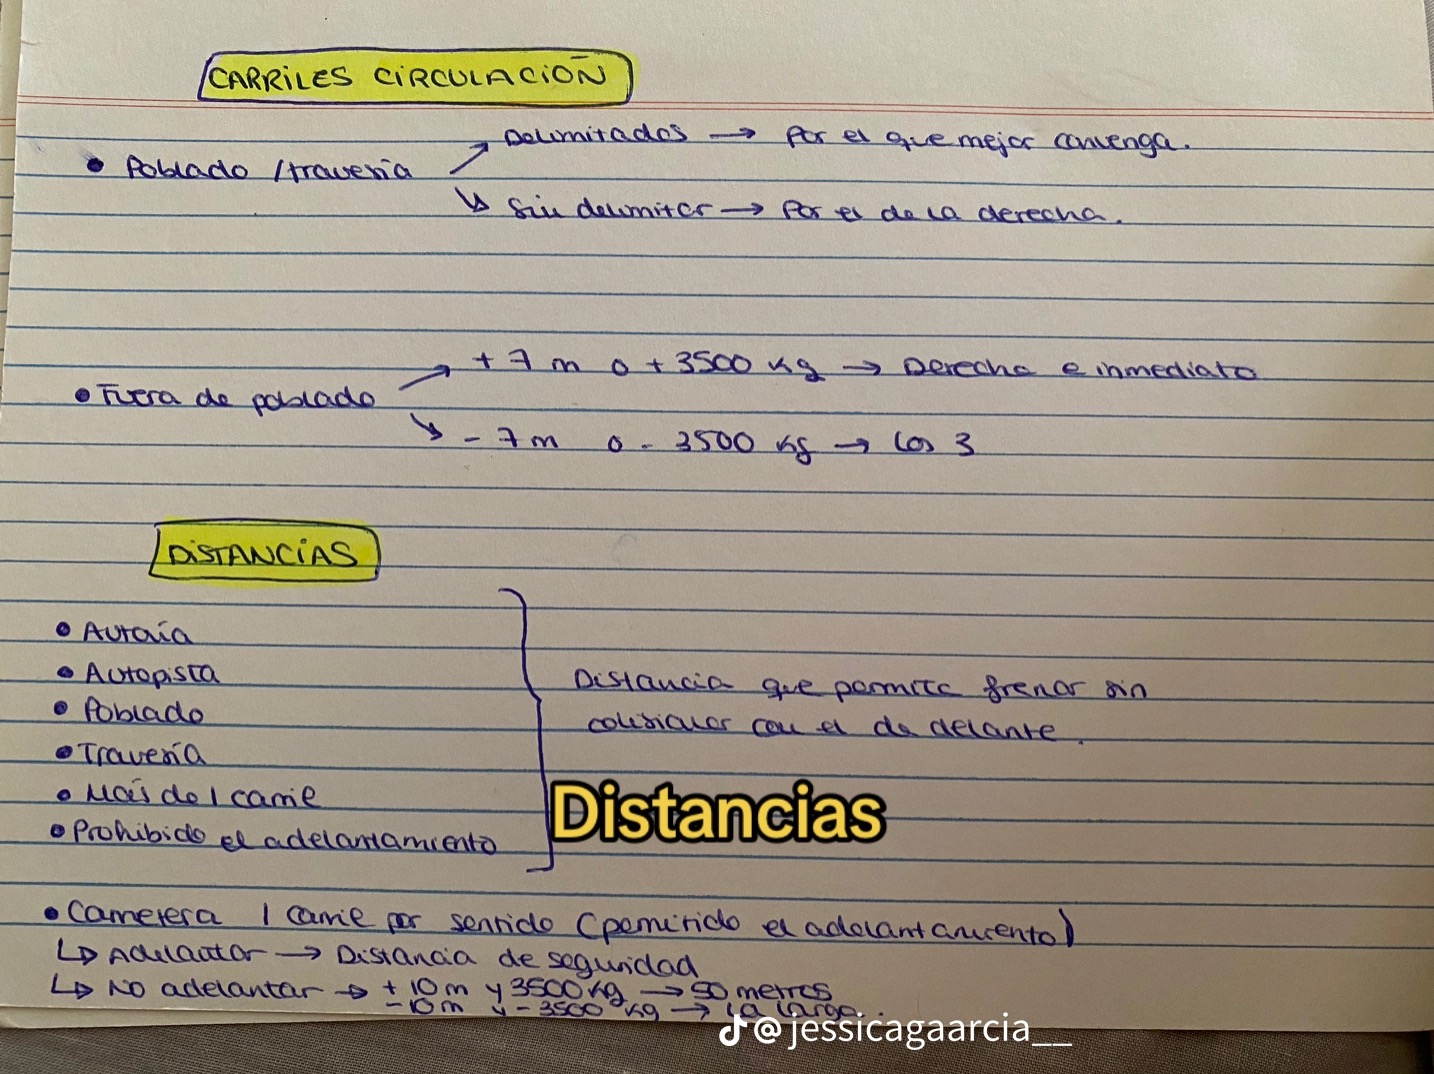 CARRILES CIRCULACIOÑ
• Poblado / travesía
Delimitados → Por el que mejor convenga.
Sin delimitar → Por el de la derecha.
• Fuera de poblado
+ 7 m o + 3500 kg → Derecha e inmediato
- 7 m o - 3500 kg → Los 3
DISTANCIAS
• Autovía
• Autopista
• Poblado
• Travesía
• Más de 1 carril
• Prohibido el adelantamiento
Distancia que permita frenar sin
colisionar con el de delante.
Distancias
• Carretera 1 carril por sentido (permitido el adelantamiento)
↳ Adelantar → Distancia de seguridad
↳ No adelantar → + 10 m y 3500 kg → 50 metros
- 10 m y - 3500 kg → La larga.
@jessicagaarcia__